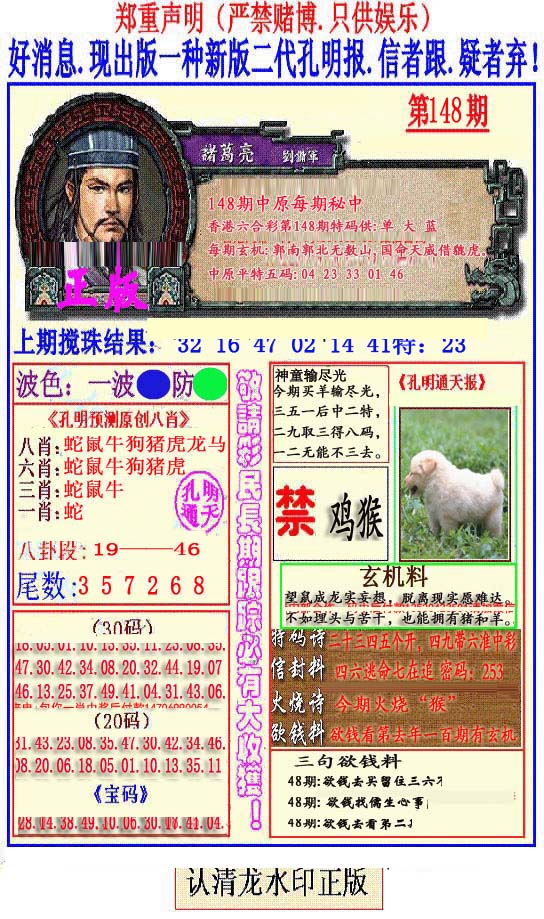 郑重声明（严禁赌博.只供娱乐）
好消息.现出版一种新版二代孔明报.信者跟.疑者弃!
第148期
諸葛亮 劉備軍
148期中原每期秘中
香港六合彩第148期特码供:单 大 蓝
每期玄机:郭南郭北无数山,国命天威借貔虎.
中原平特五码:04 23 33 01 46
正版
上期搅珠结果: 32 16 47 02 14 41特: 23
波色: 一波 防
《孔明预测原创八肖》
八肖:蛇鼠牛狗猪虎龙马
六肖:蛇鼠牛狗猪虎
三肖:蛇鼠牛
一肖:蛇
孔明
通天
八卦段:19——46
尾数:357268
(30码)
18.05.01.10.13.35.11.23.08.33.
47.30.42.34.08.20.32.44.19.07
46.13.25.37.49.41.04.31.43.06.
(20码)
31.43.23.08.35.47.30.42.34.46.
08.20.06.18.05.01.10.13.35.11
《宝码》
28.14.38.49.10.06.30.18.41.04.
敬請彩民長期跟踪必有大收獲!
神童输尽光
今期买羊输尽光,
三五一后中二特,
二九取三得八码,
一二无能不三去。
《孔明通天报》
禁 鸡猴
玄机料
望鼠成龙实妄想，脱离现实愿难达。
不如埋头与苦干，也能拥有猪和羊。
特码诗 二十三四五个开,四九带六准中彩
信封料 四六逃命七在追 密码: 253
火烧诗 今期火烧“猴”
欲钱料 欲钱看第去年一百期有玄机
三句欲钱料
48期:欲钱去买留住三六
48期:欲钱找儒生心事
48期:欲钱去看第二
认清龙水印正版